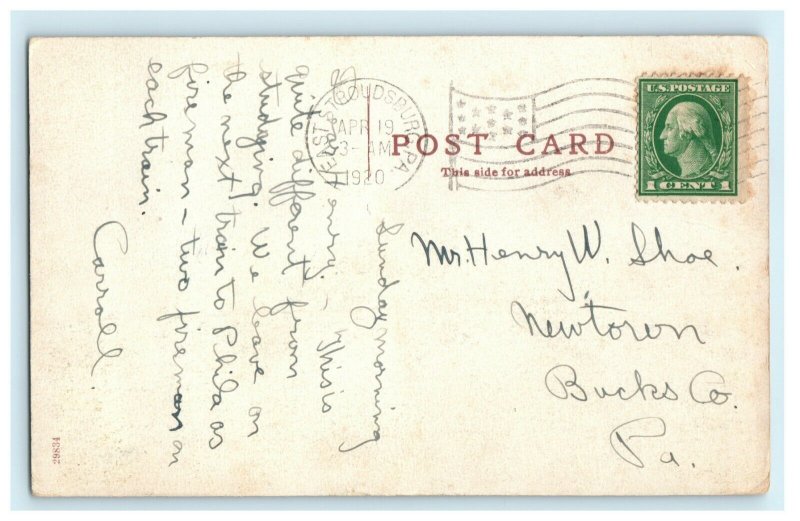 EAST STROUDSBURG, PA
APR 19
3-AM
1920
POST CARD
This side for address
U.S. POSTAGE
1 CENT 1
Mr. Henry W. Shoe.
Newtown
Bucks Co.
Pa.
Sunday morning
Henry: This is
quite different from
studying. We leave on
the next train to Phila as
fireman - two fireman on
each train.
Carroll.
29834